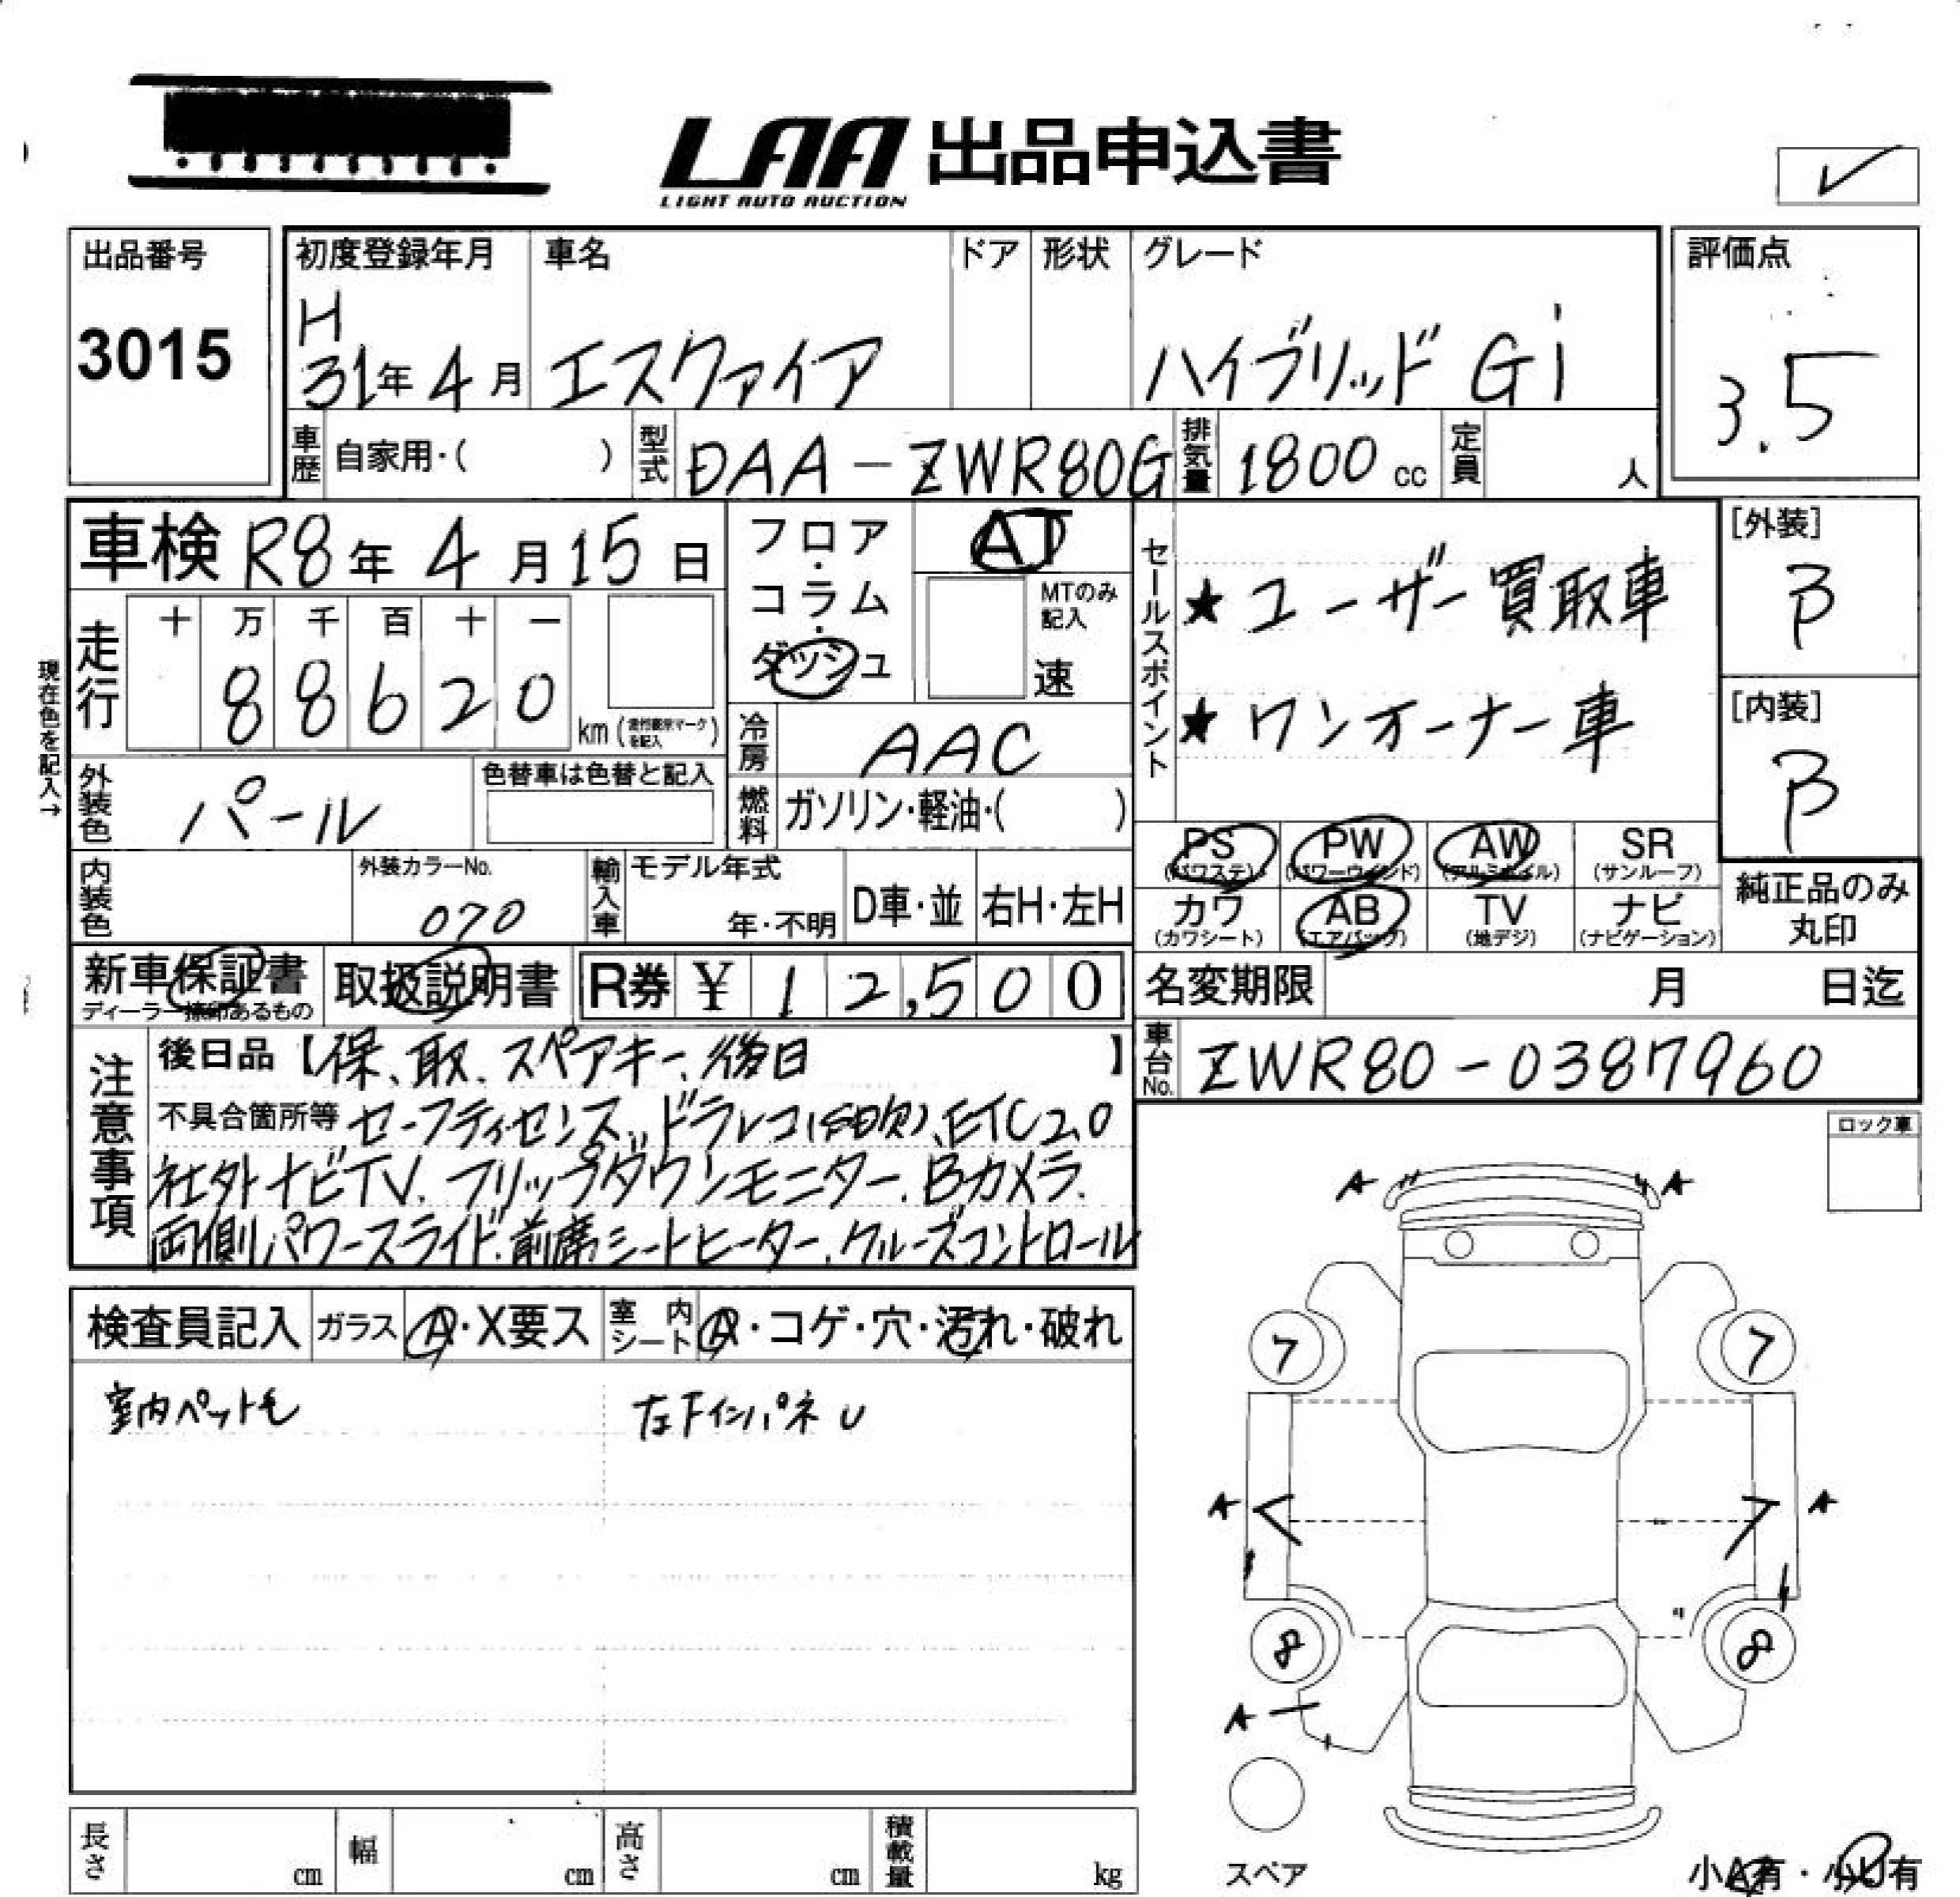 LAA 出品申込書
LIGHT AUTO AUCTION
出品番号
3015
初度登録年月
H
31年 4月
車名
エスクァイア
ドア
形状
グレード
ハイブリッド Gi
評価点
3.5
車歴 自家用・( )
型式 DAA-ZWR80G
排気量 1800 cc
定員 人
車検 R8年 4月 15日
フロア・コラム・ダッシュ
AT
MTのみ記入
速
セールスポイント
★ユーザー買取車
★ワンオーナー車
[外装]
B
[内装]
B
現在色を記入→
走行
十 万 千 百 十 一
8 8 6 2 0
km
冷房 AAC
外装色 パール
色替車は色替と記入
燃料 ガソリン・軽油・( )
PS (パワステ)
PW (パワーウィンド)
AW (アルミホイル)
SR (サンルーフ)
カワ (カワシート)
AB (エアバック)
TV (地デジ)
ナビ (ナビゲーション)
純正品のみ
丸印
内装色
外装カラーNo.
070
輸入車
モデル年式
年・不明
D車・並
右H・左H
新車保証書
ディーラー捺印あるもの
取扱説明書
R券 ¥ 12,500
名変期限 月 日迄
車台No. ZWR80-0387960
注意事項
後日品【保、取、スペアキー、後日】
不具合箇所等 セーフティセンス、ドラレコ、ETC2.0
社外ナビTV、フリップダウンモニター、Bカメラ、
両側パワースライド、前席シートヒーター、クルーズコントロール
ロック車
検査員記入
ガラス A・X要ス
室内シート A・コゲ・穴・汚れ・破れ
室内ペット毛
左下インパネU
A A
7 7
A A
8 8
A
スペア
小A有・小U有
長さ cm
幅 cm
高さ cm
積載量 kg